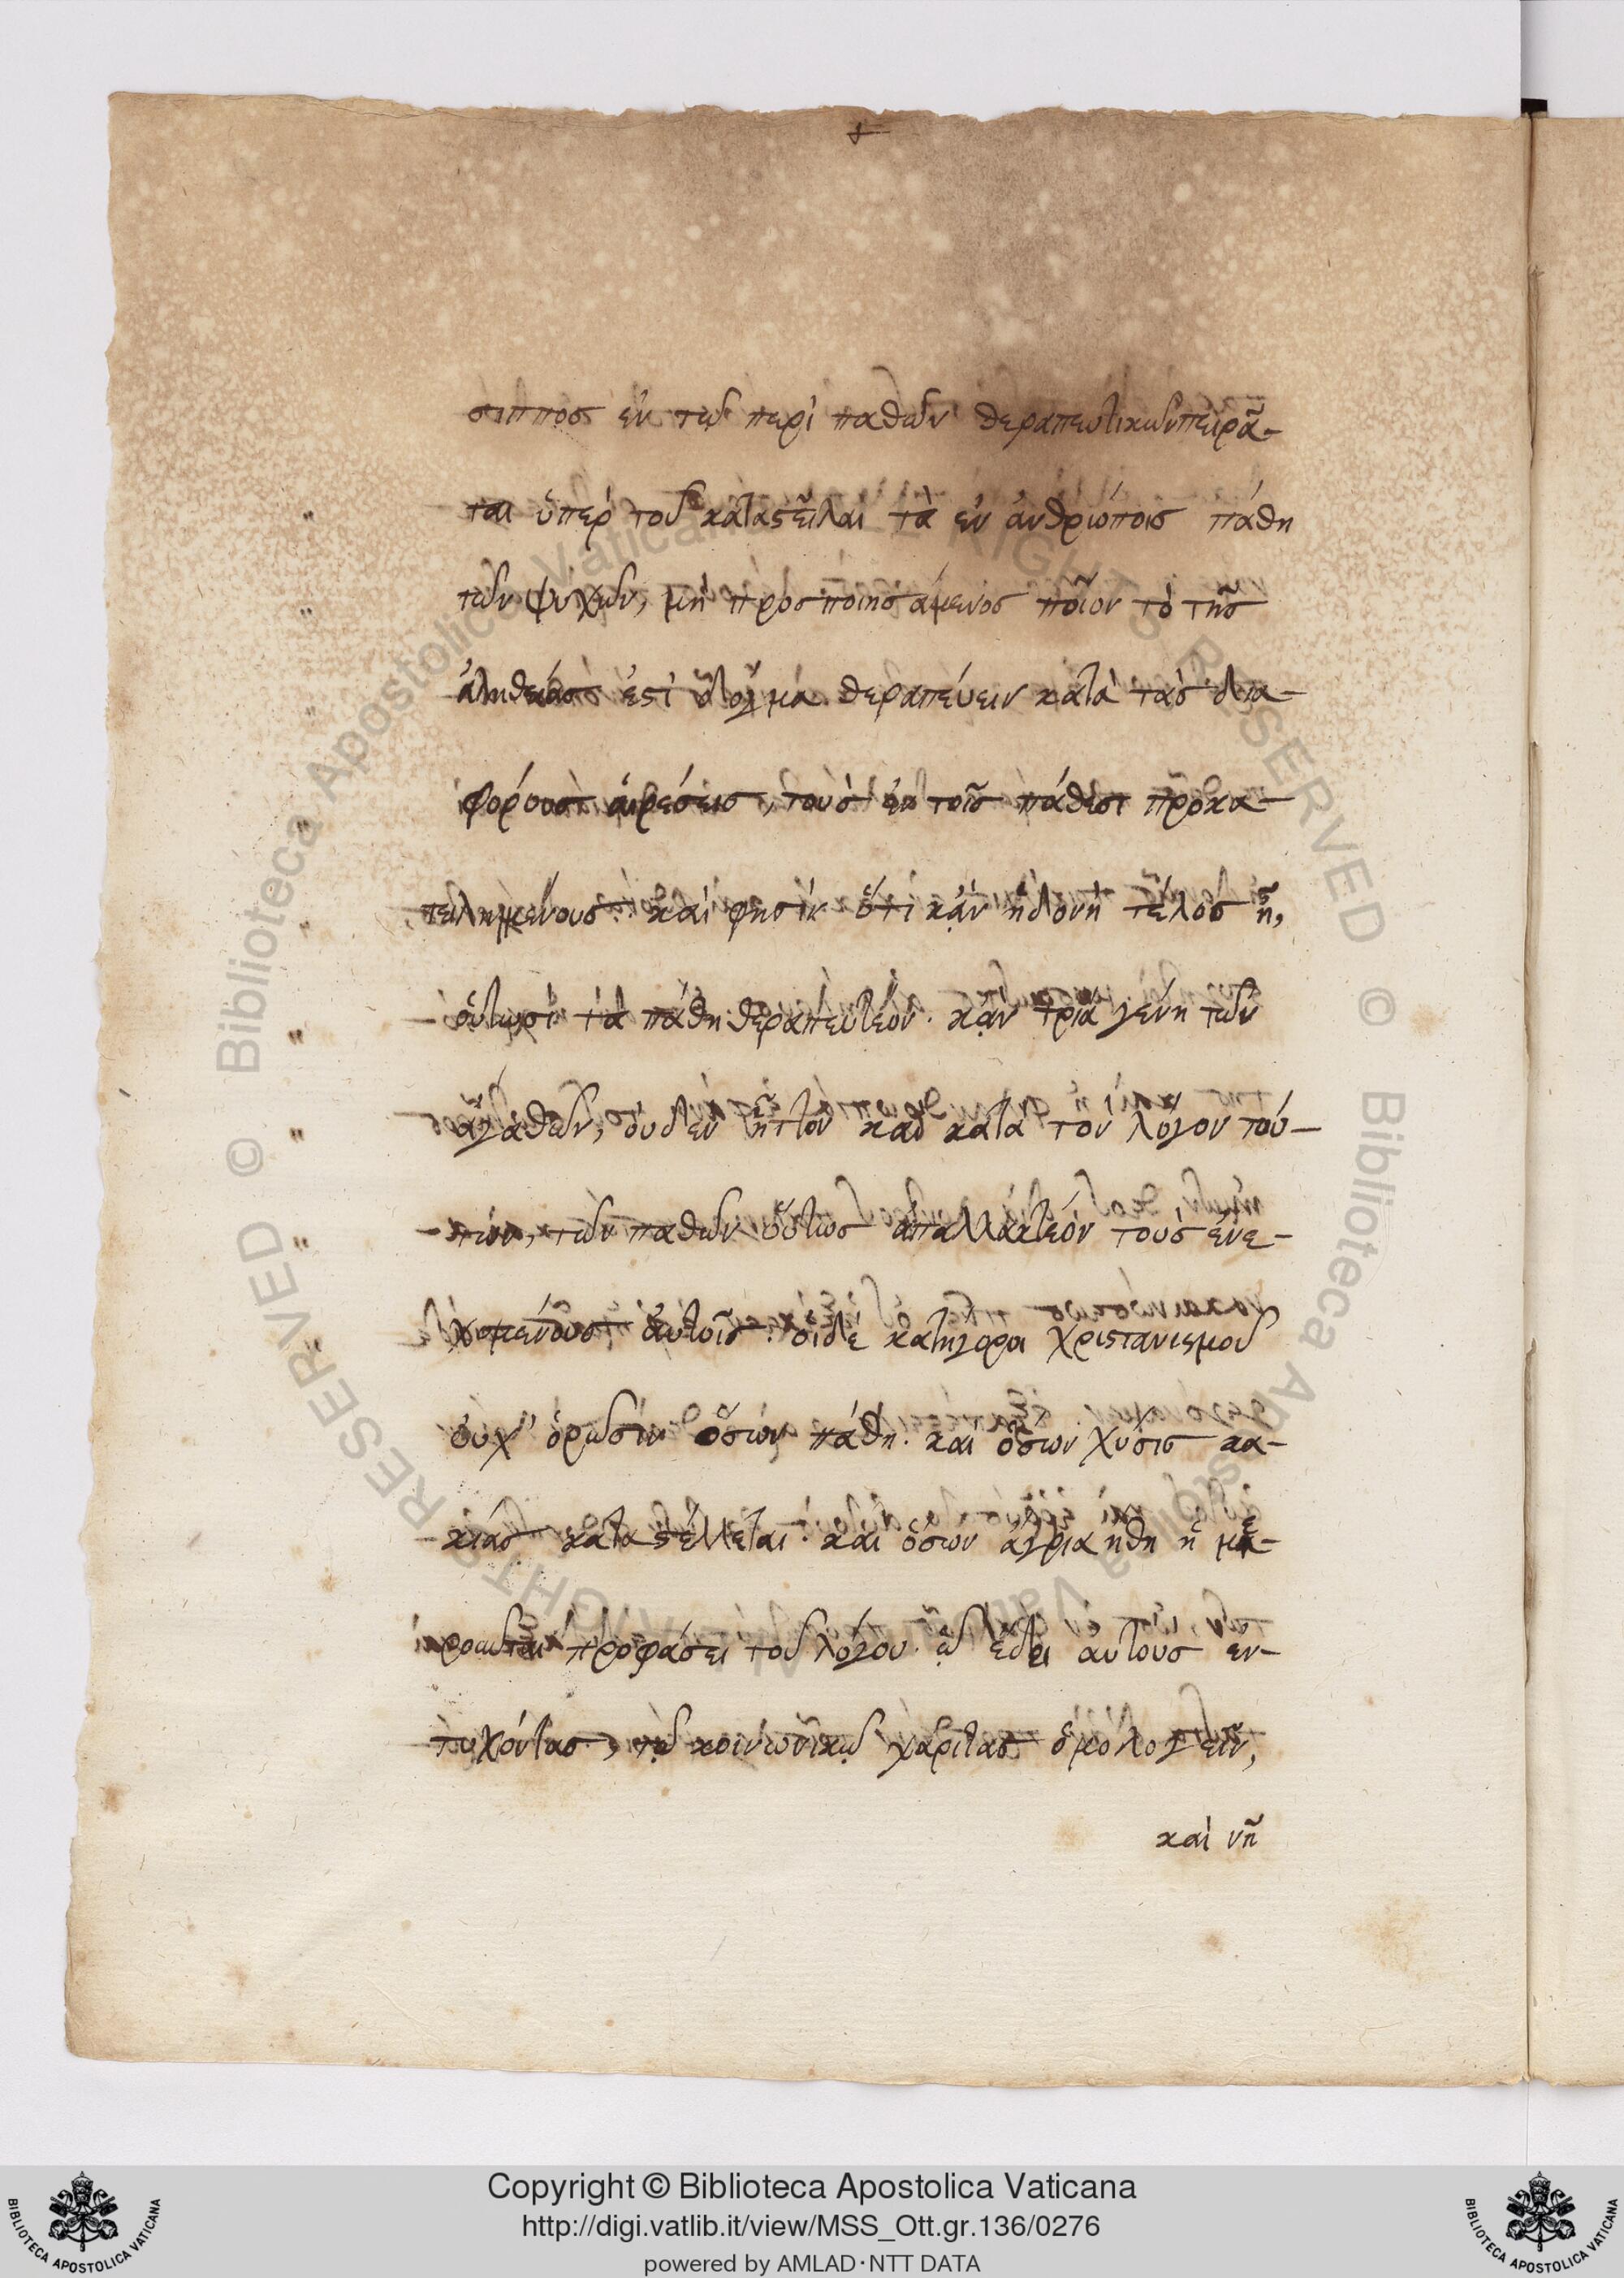 σιππος ἐν τῷ περὶ παθῶν θεραπευτικῶν πειρᾶ-
ται ὑπὲρ τοῦ καταστεῖλαι τὰ ἐν ἀνθρώποις πάθη
τῶν ψυχῶν, μὴ προσποιησάμενος ποῖον τὸ τῆς
ἀληθείας ἐστὶ δόγμα. θεραπεύειν κατὰ τὰς δια-
φόρους αἱρέσεις, τοὺς ἐν τοῖς πάθεσι προκα-
τειλημμένους. καί φησιν ὅτι κᾂν ἡδονὴ τέλος ᾖ,
οὑτωσὶ τὰ πάθη θεραπευτέον. κᾂν τρία γένη τῶν
ἀγαθῶν, οὐδὲν ἧττον καὶ κατὰ τὸν λόγον τού-
των, τῶν παθῶν οὕτως ἀπαλλακτέον τοὺς ἐνε-
χομένους αὐτοῖς. οἱ δὲ κατήγοροι χριστανισμοῦ
οὐχ' ὁρῶσιν ὅσων πάθη. καὶ ὅσων χύσις κα-
κίας καταστέλλεται. καὶ ὅσων ἄγρια ἤθη ἡμε-
ροῦται προφάσει τοῦ λόγου. ᾧ ἔδει αὐτοὺς ἐν-
τυχόντας, τῷ κοινωνικῷ χάριτας ὁμολογεῖν,
καὶ νῆ
+
Copyright © Biblioteca Apostolica Vaticana
http://digi.vatlib.it/view/MSS_Ott.gr.136/0276
powered by AMLAD·NTT DATA
BIBLIOTECA APOSTOLICA VATICANA
BIBLIOTECA APOSTOLICA VATICANA